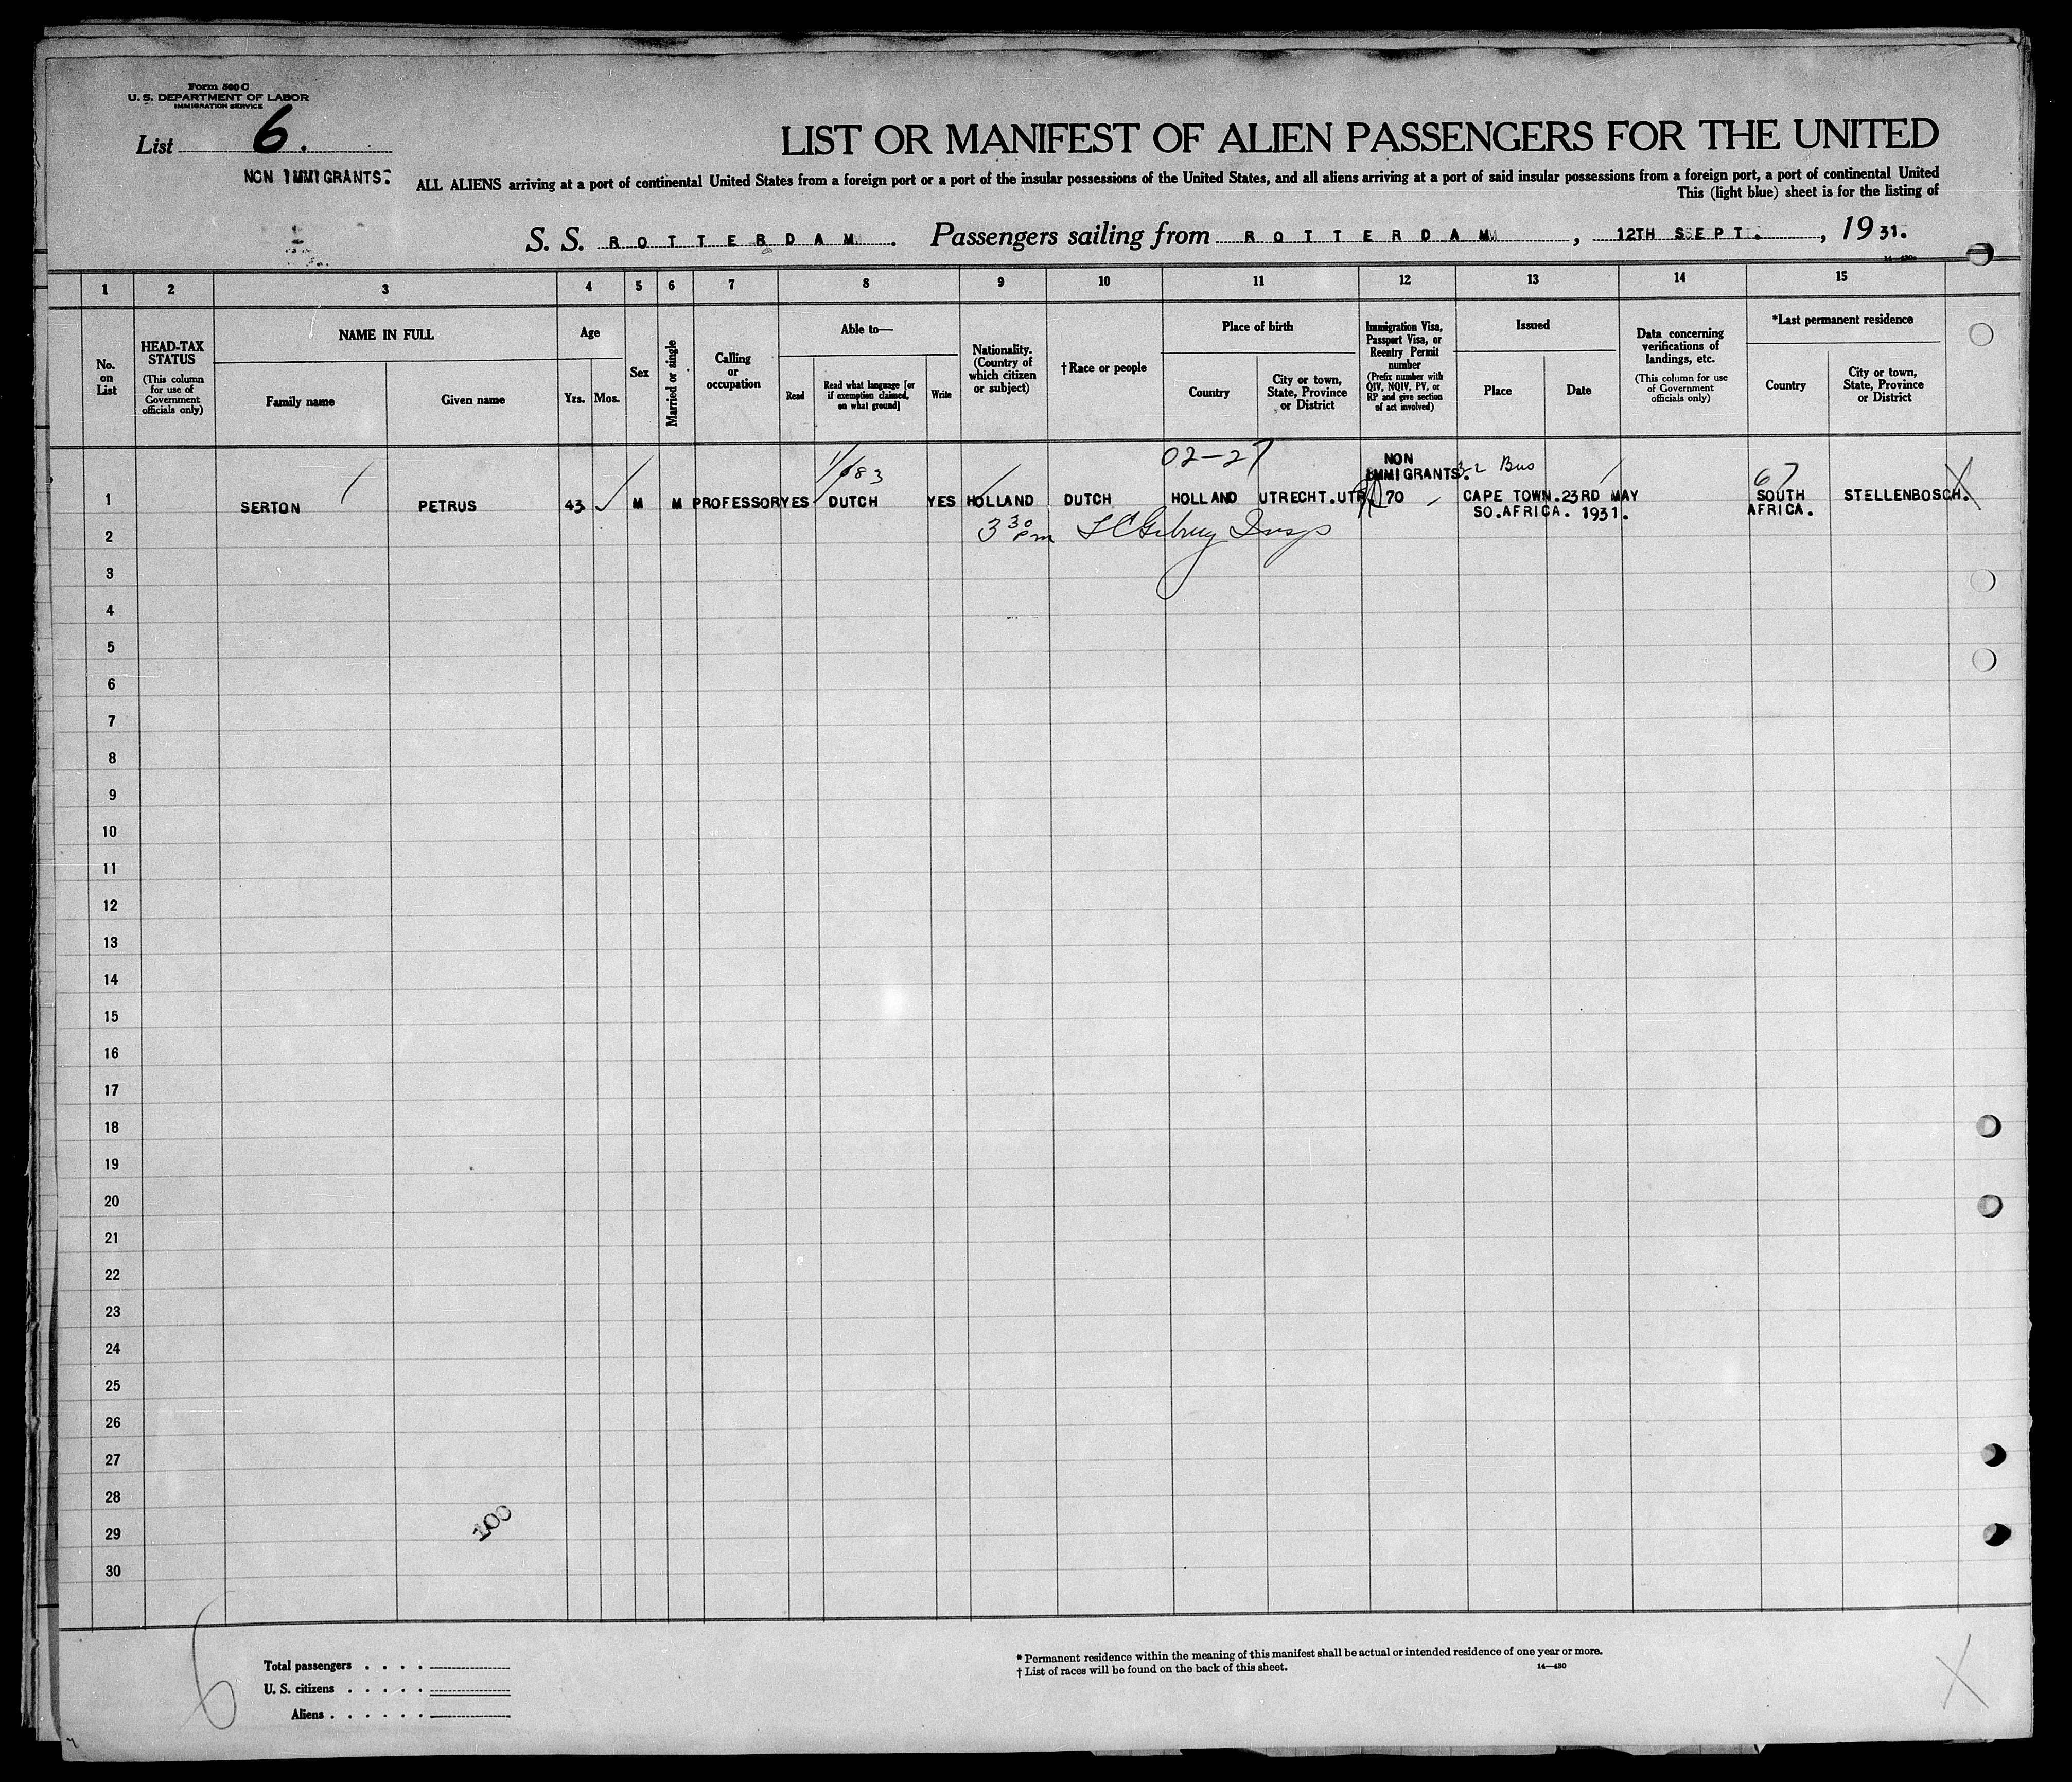 Form 500 C
U. S. DEPARTMENT OF LABOR
IMMIGRATION SERVICE
List 6.
NON IMMIGRANTS.
LIST OR MANIFEST OF ALIEN PASSENGERS FOR THE UNITED
ALL ALIENS arriving at a port of continental United States from a foreign port or a port of the insular possessions of the United States, and all aliens arriving at a port of said insular possessions from a foreign port, a port of continental United
This (light blue) sheet is for the listing of
S. S. ROTTERDAM. Passengers sailing from ROTTERDAM, 12TH SEPT., 1931.
1 2 3 4 5 6 7 8 9 10 11 12 13 14 15
No. on List
HEAD-TAX STATUS
(This column for use of Government officials only)
NAME IN FULL
Family name
Given name
Age
Yrs. Mos.
Sex
Married or single
Calling or occupation
Able to—
Read
Read what language [or if exemption claimed, on what ground]
Write
Nationality. (Country of which citizen or subject)
†Race or people
Place of birth
Country
City or town, State, Province or District
Immigration Visa, Passport Visa, or Reentry Permit number
(Prefix number with QIV, NQIV, PV, or RP and give section of act involved)
Issued
Place
Date
Data concerning verifications of landings, etc.
(This column for use of Government officials only)
*Last permanent residence
Country
City or town, State, Province or District
02-27
NON
IMMIGRANTS.
3-2 Bus
67
1 SERTON PETRUS 43 M M PROFESSOR YES DUTCH YES HOLLAND DUTCH HOLLAND UTRECHT.UTR. 70 CAPE TOWN. 23RD MAY SOUTH STELLENBOSCH.
SO.AFRICA. 1931. AFRICA.
2 3 30 pm
3
4
5
6
7
8
9
10
11
12
13
14
15
16
17
18
19
20
21
22
23
24
25
26
27
28
29
30
100
6
Total passengers
U. S. citizens
Aliens
* Permanent residence within the meaning of this manifest shall be actual or intended residence of one year or more.
† List of races will be found on the back of this sheet.
14—430